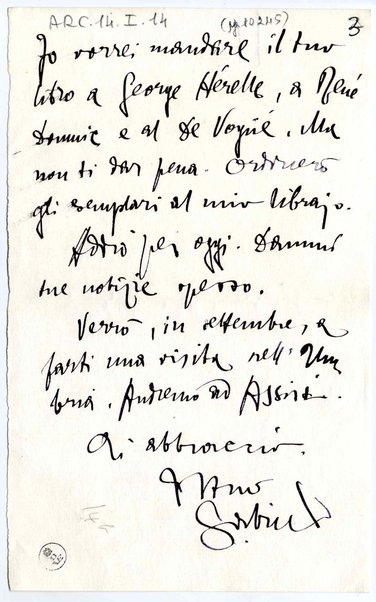 ARC.14.I.14 (rf 10245) 3
Io vorrei mandare il tuo
libro a George Hérelle, a René
Doumic e al De Vogüé. Ma
non ti dar pena. Ordinerò
gli esemplari al mio librajo.
Addio per oggi. Dammi
tue notizie spesso.
Verrò, in settembre, a
farti una visita nell' Um
bria. Andremo ad Assisi.
Ti abbraccio.
Il tuo
Gabriel